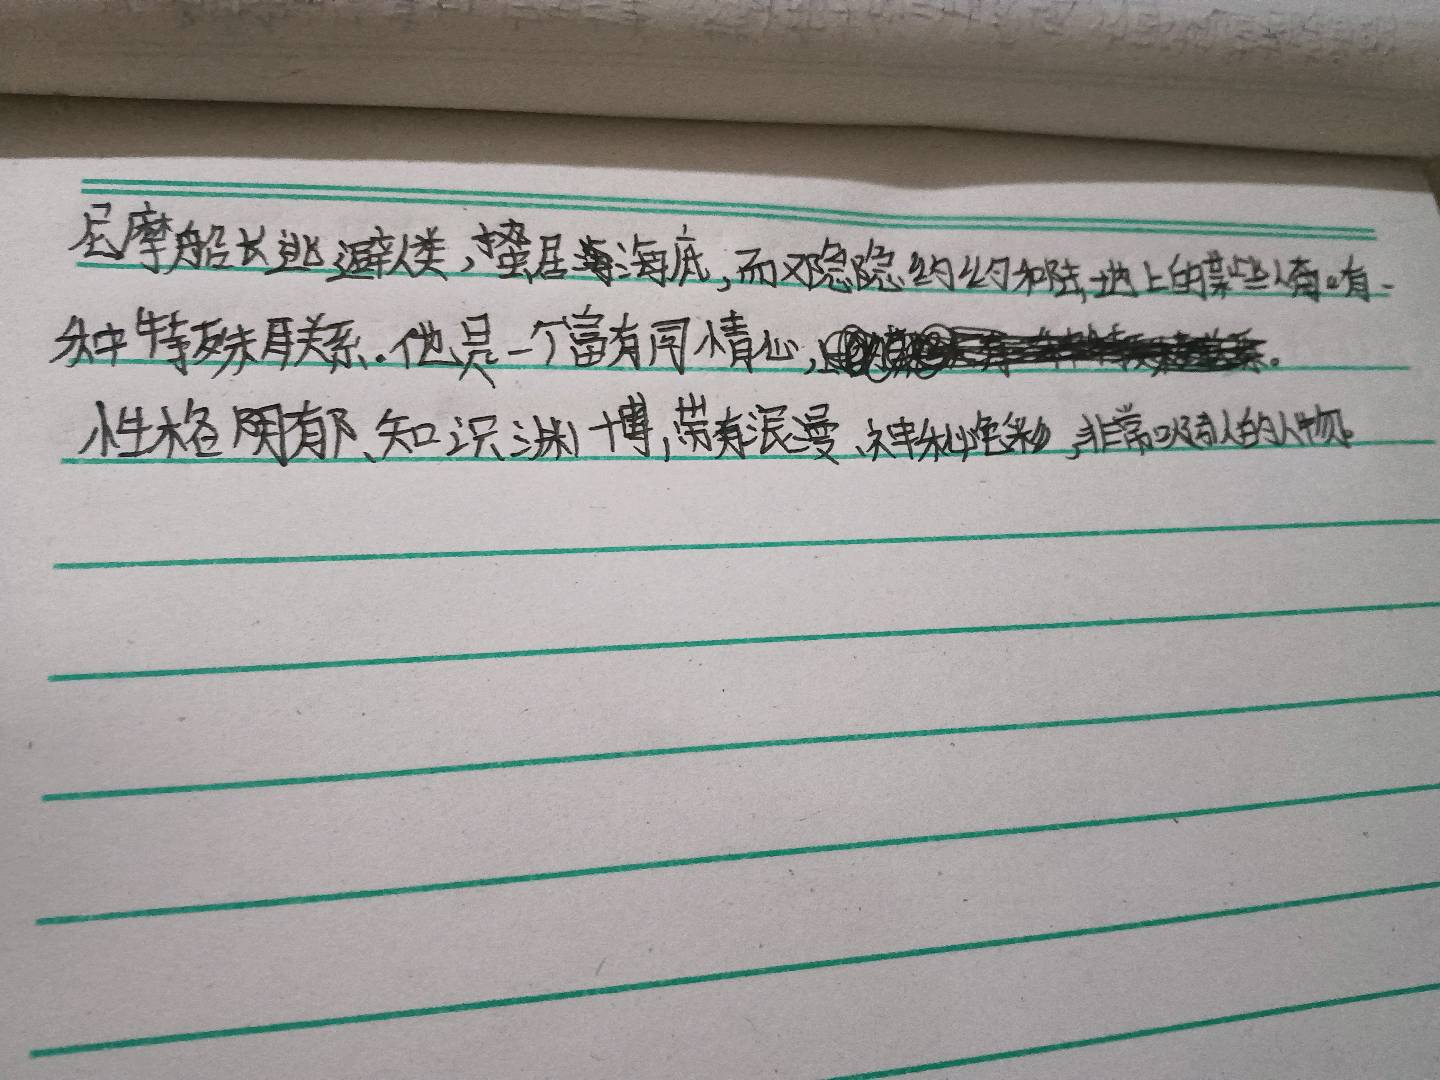 尼摩船长逃避人类，蛰居海底，而又隐隐约约和陆地上的某些人有。有一
种特殊联系。他是一个富有同情心，
性格阴郁、知识渊博，带有浪漫、神秘色彩，非常吸引人的人物。